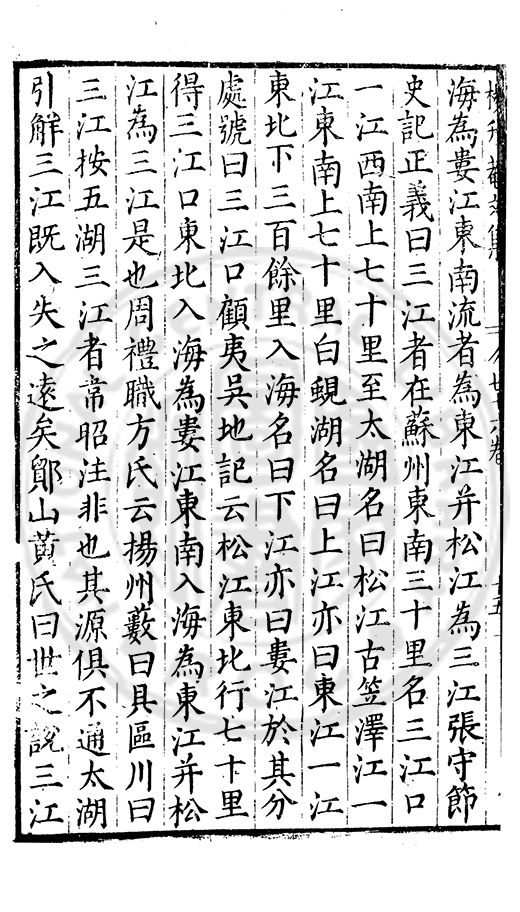 海為婁江東南流者為東江并松江為三江張守節
史記正義曰三江者在蘇州東南三十里名三江口
一江西南上七十里至太湖名曰松江古笠澤江一
江東南上七十里白蜆湖名曰上江亦曰東江一江
東北下三百餘里入海名曰下江亦曰婁江於其分
處號曰三江口顧夷吳地記云松江東北行七十里
得三江口東北入海為婁江東南入海為東江并松
江為三江是也周禮職方氏云揚州藪曰具區川曰
三江按五湖三江者常昭注非也其源俱不通太湖
引解三江既入失之遠矣鄮山黃氏曰世之說三江